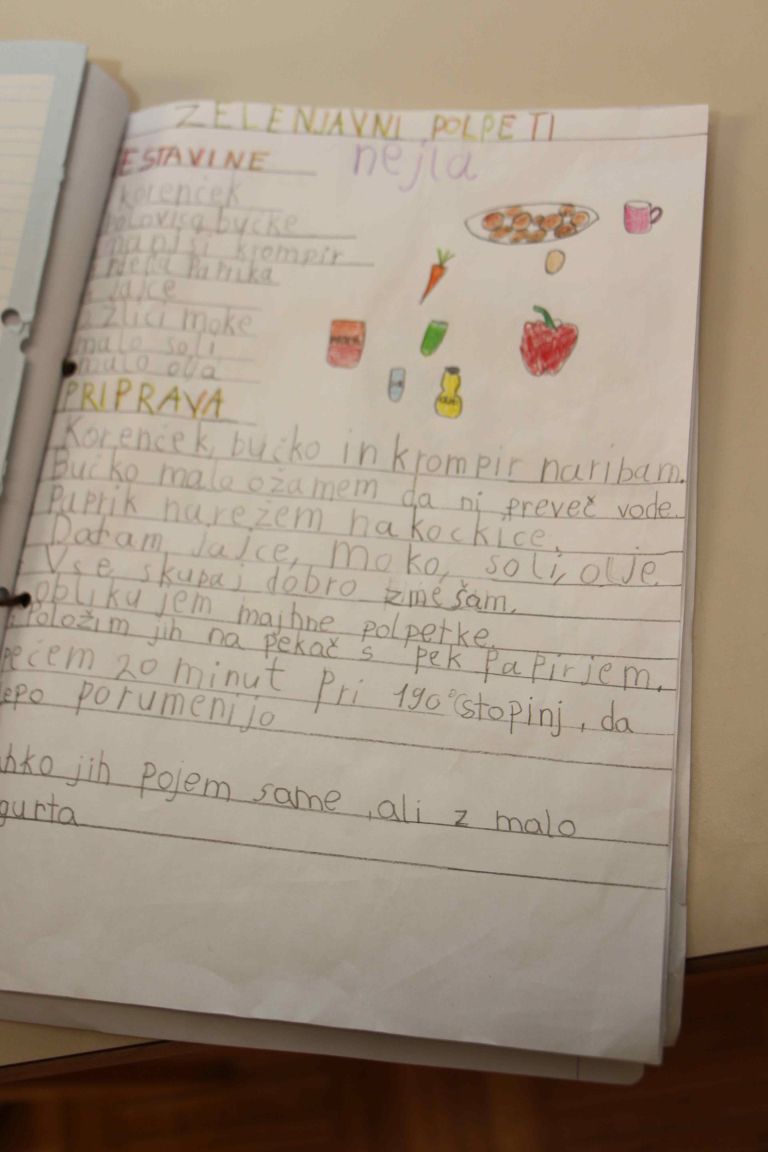 ZELENJAVNI POLPETI
ESTAVINE nejla
korenček
polovica bučke
manjši krompir
rdeča Paprika
Jajce
žlici moke
malo soli
malo olja
PRIPRAVA
Korenček, bučko in krompir naribam.
Bučko malo ožamem da ni preveč vode.
Paprik narežem na kockice.
Dodam Jajce, moko, soli, olje
Vse skupaj dobro zmešam.
oblikujem majhne polpetke.
Položim jih na pekač s pek Papirjem.
pečem 20 minut Pri 190°C stopinj, da
epo porumenijo
hko jih Pojem same, ali z malo
gurta